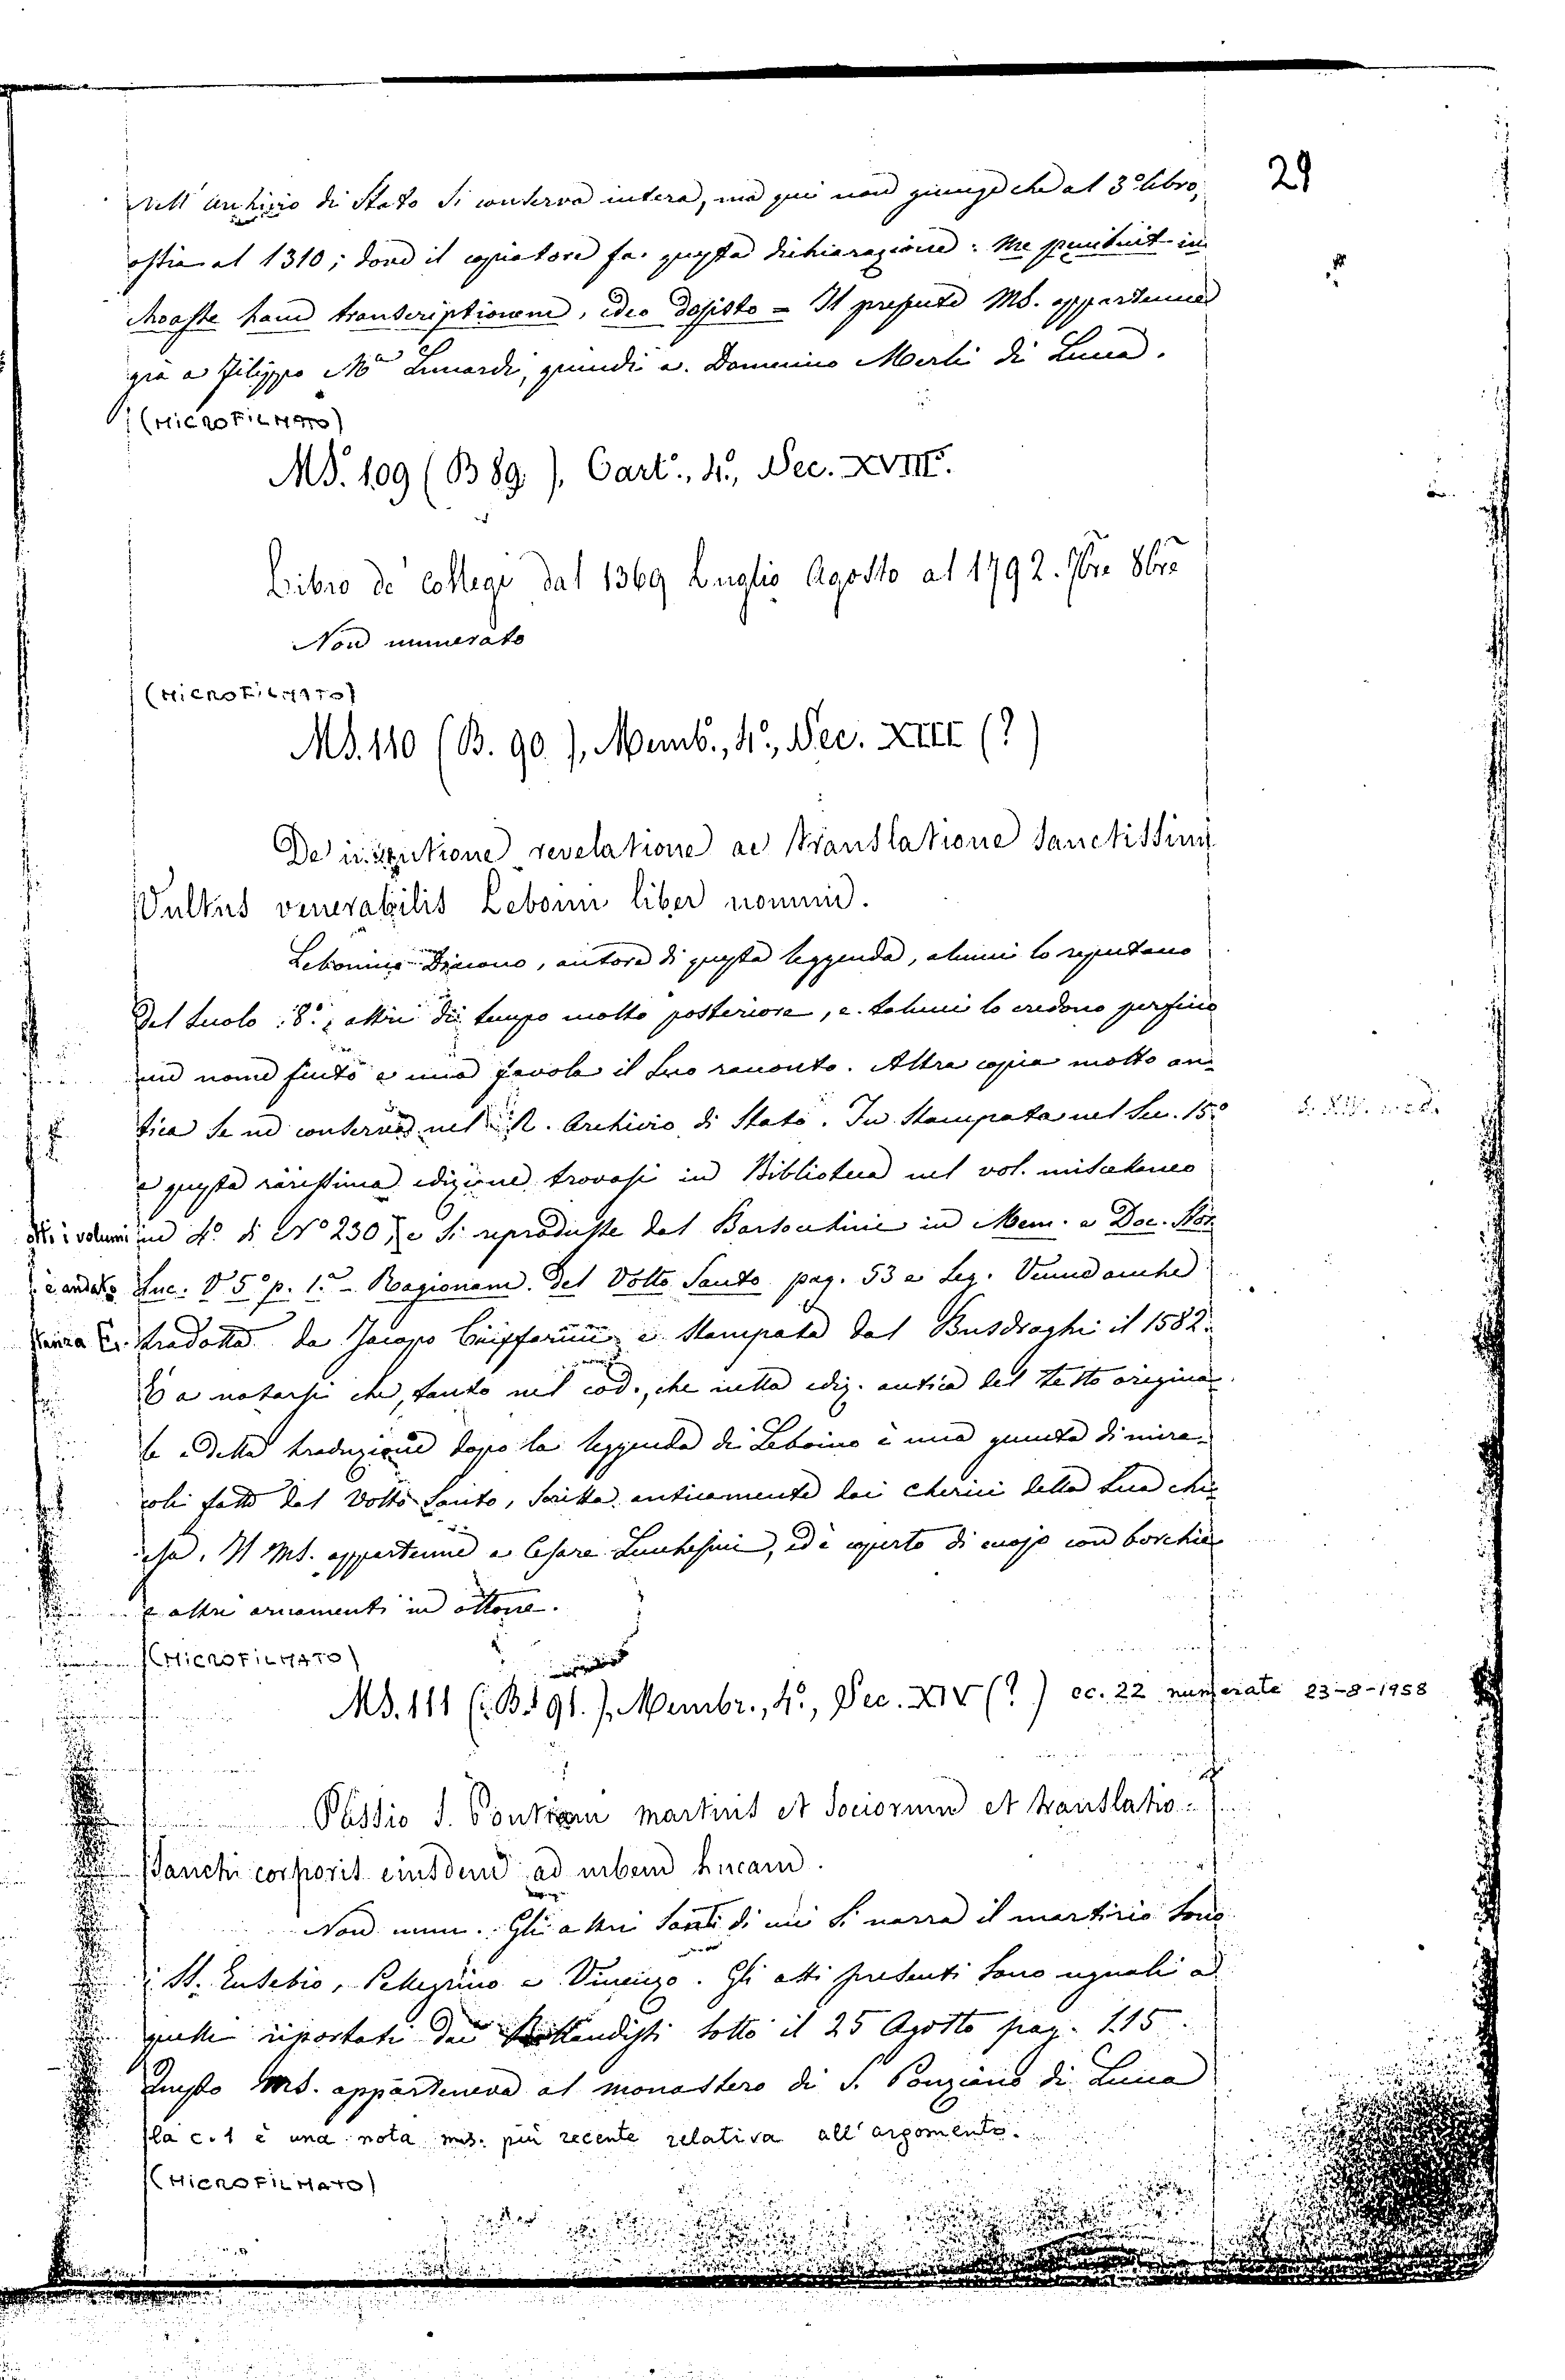 29
nell'Archivio di Stato si conserva intera, ma qui non giunge che al 3º libro,
ossia al 1310; dove il copiatore fa questa dichiarazione: Me penituit in
choasse hanc transcriptionem, ideo desisto = Il presente MS. appartenne
già a Filippo Mª Lunardi, quindi a Domenico Merli di Lucca.
(MICROFILMATO)
MS. 109 (B 89.), Cart., 4º, Sec. XVIII.
Libro de' collegi dal 1369 Luglio Agosto al 1792. 7bre 8bre
Non numerato
(MICROFILMATO)
MS. 110 (B. 90.), Memb., 4º, Sec. XIII (?)
De inventione revelatione ac translatione Sanctissimi
Vultus venerabilis Leboini liber nomine.
Leboinio Diacono, autore di questa leggenda, alcuni lo reputano
del secolo 8º, altri di tempo molto posteriore, e taluni lo credono perfino
un nome finto e una favola il suo racconto. Altra copia molto an-
tica se ne conserva nel R. Archivio di Stato. Fu stampata nel sec. 15º
e questa rarissima edizione trovasi in Biblioteca nel vol. miscellaneo
in 4º di Nº 230, e si riprodusse dal Barsocchini in Mem. e Doc. Stor.
i volumi
Luc. V 5º p. 1ª - Ragionam. del Volto Santo pag. 53 e seg. Venne anche
è andato
tradotta da Jacopo e stampata dal Busdraghi il 1582.
senza
È a notarsi che, tanto nel cod., che nella ediz. antica del testo origina-
le e della traduzione dopo la leggenda di Leboino è una giunta di mira-
coli fatti dal Volto Santo, scritta anticamente dai cherici della sua chi-
esa. Il MS. appartenne a Cesare Lucchesini, ed è coperto di cuojo con borchie
e altri ornamenti in ottone.
(MICROFILMATO)
MS. 111 (B. 91.), Membr., 4º, Sec. XIV (?) cc. 22 numerate 23-8-1958
Passio S. Pontiani martiris et sociorum et translatio
Sancti corporis eiusdem ad urbem lucam.
Non num. Gli altri Santi di cui si narra il martirio sono
i SS. Eusebio, Pellegrino e Vincenzo. Gli atti presenti sono uguali a
quelli riportati dai Bollandisti sotto il 25 Agosto pag. 115.
Questo MS. apparteneva al monastero di S. Ponziano di Lucca
lla c. 1 è una nota ms. più recente relativa all'argomento.
(MICROFILMATO)